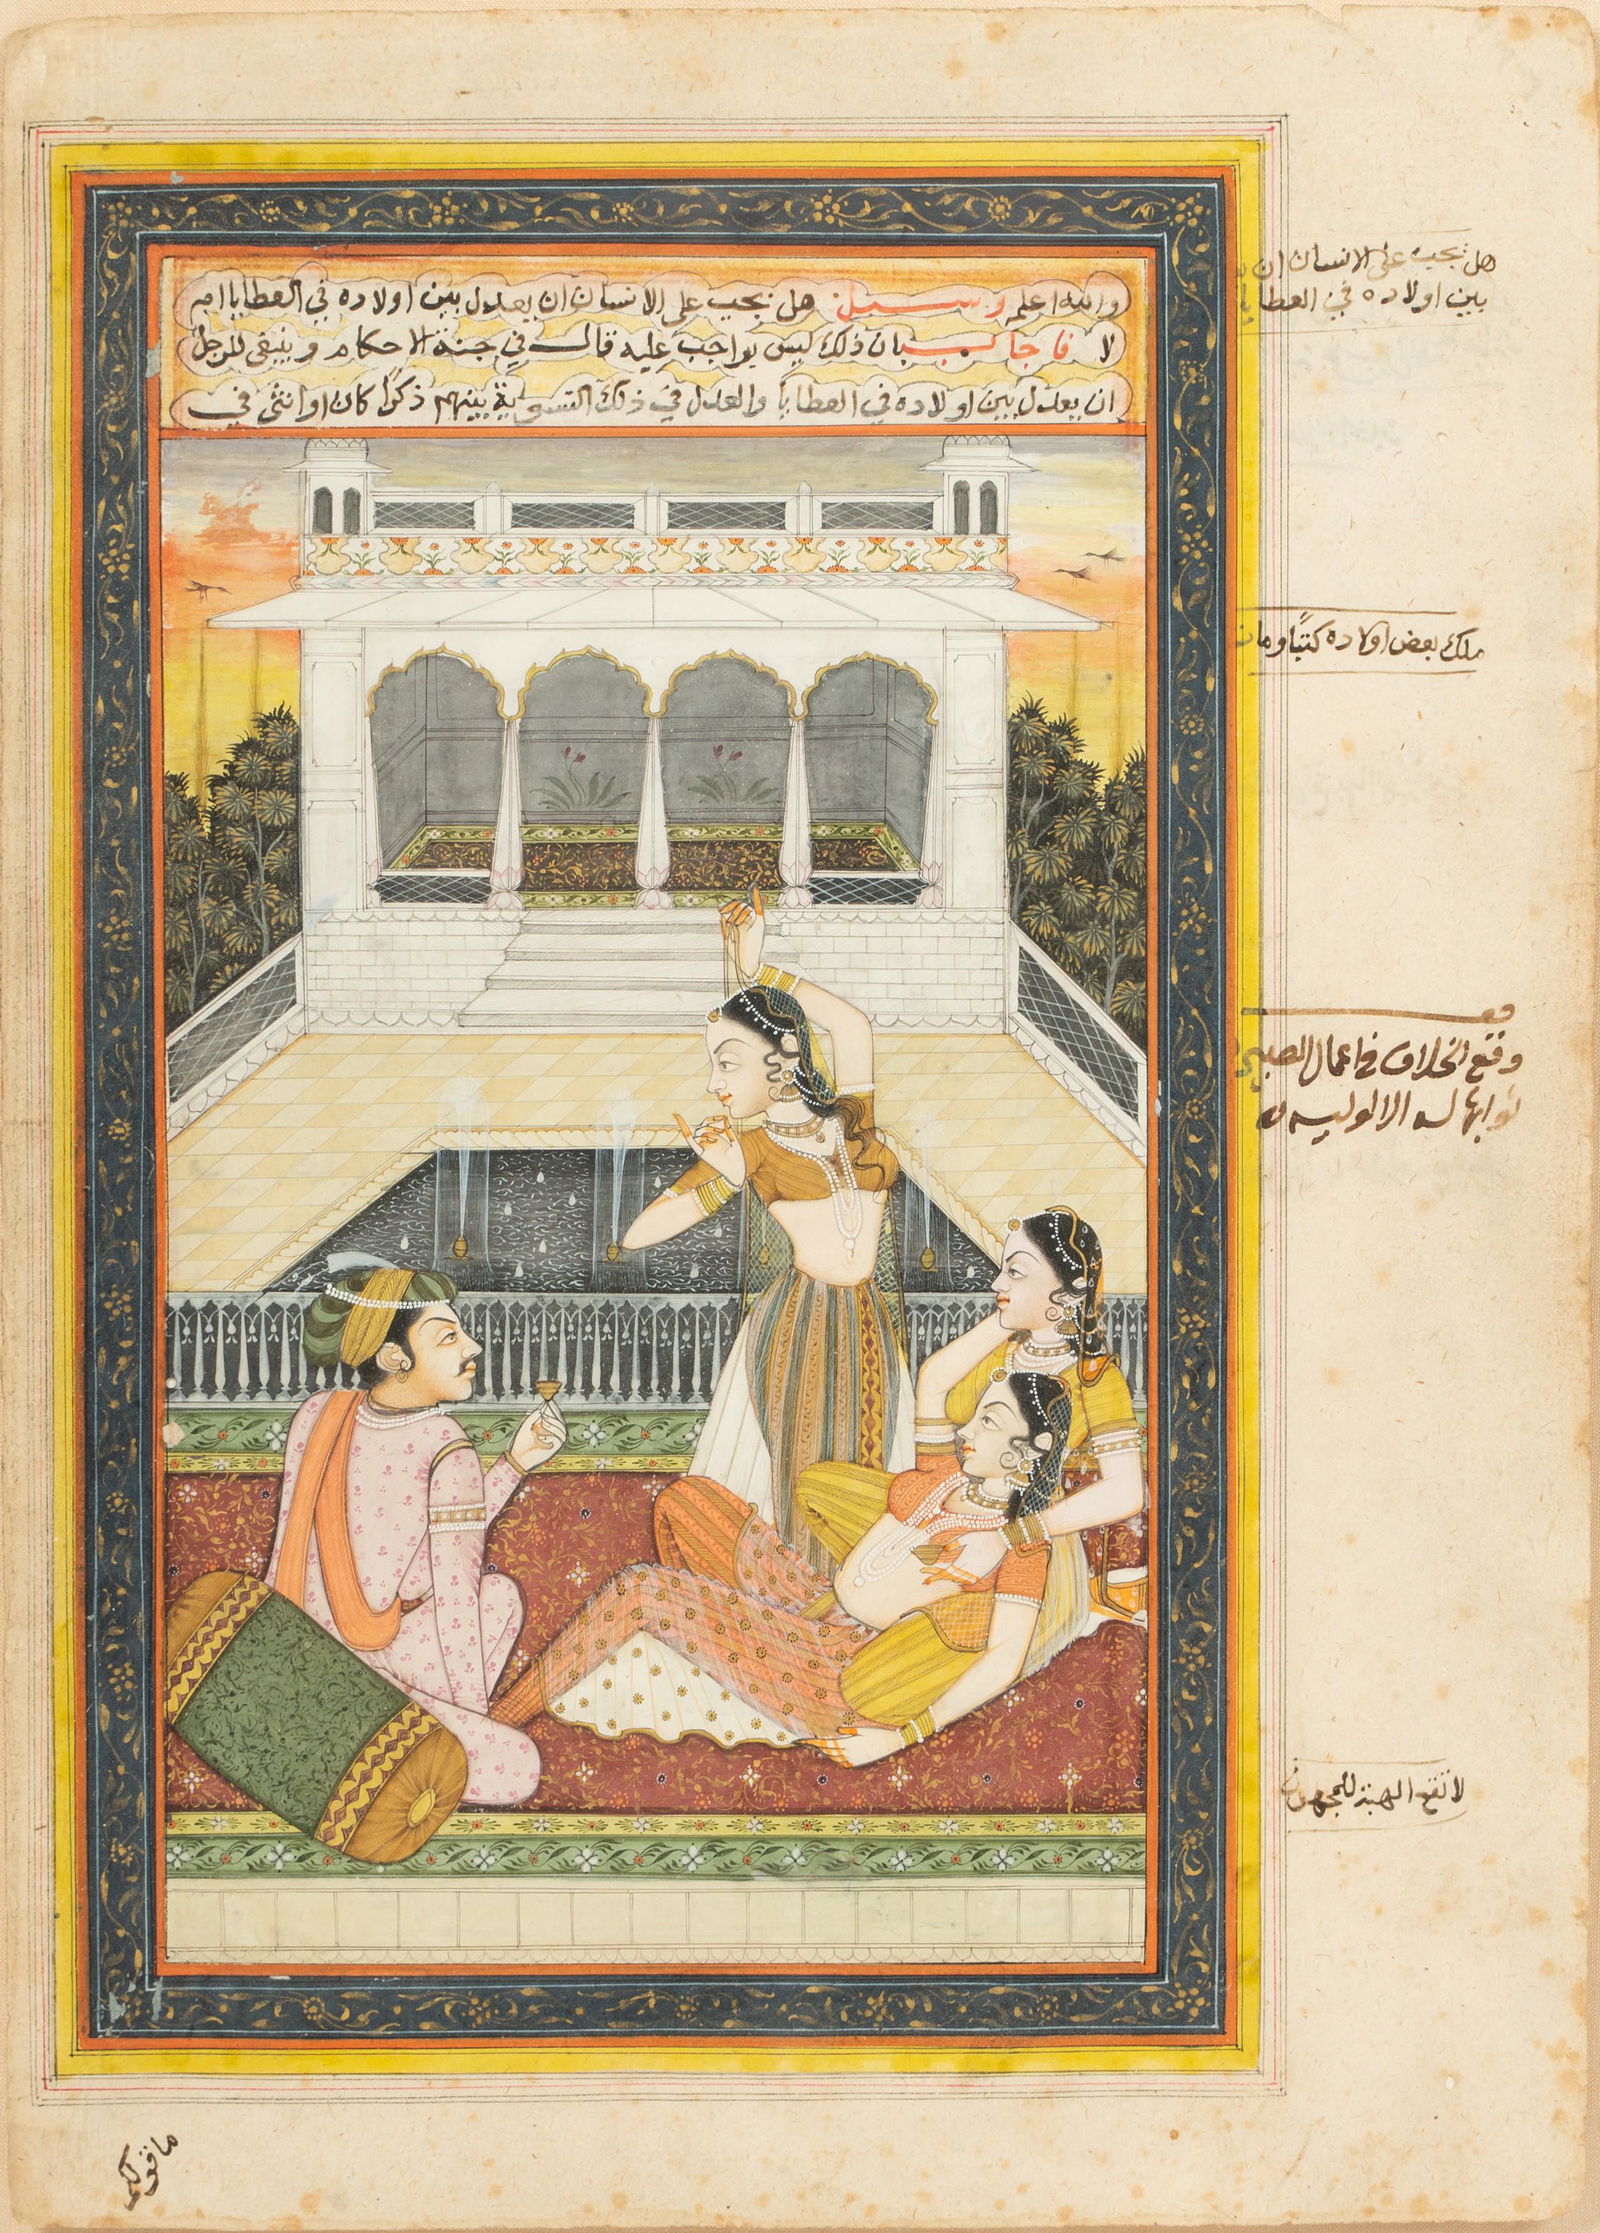 والله اعلم وسئل هل يجب على الانسان ان يعدل بين اولاده في العطايا ام
لا فاجاب بان ذلك ليس بواجب عليه قال في جنة الاحكام وينبغى للرجل
ان يعدل بين اولاده في العطايا والعدل في ذلك التسوية بينهم ذكرًا كان او انثى في
هل يجب على الانسان ان
بين اولاده في العطايا
ملك بعض اولاده كتبًا ومات
وقع الخلاف في اعمال الصبي
ثوابها له او لوليه
لا تقع الهبة للمجهول
ما قولكم